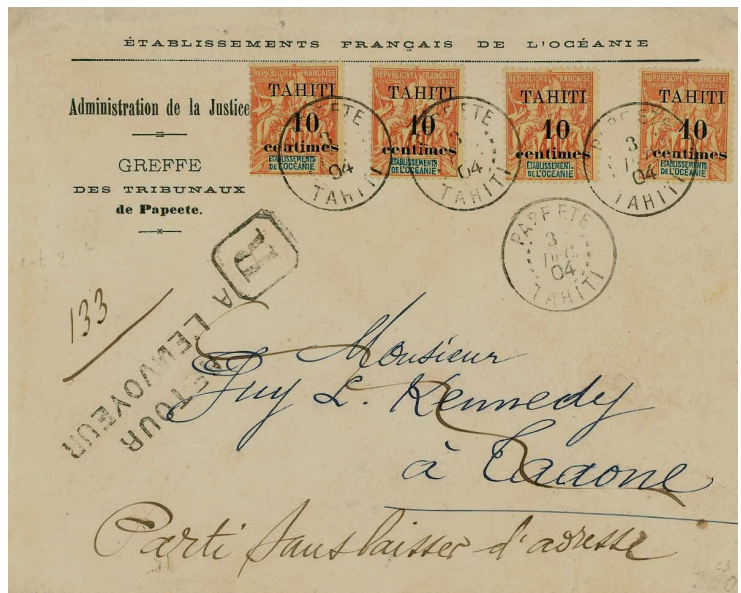 ÉTABLISSEMENTS FRANÇAIS DE L'OCÉANIE
Administration de la Justice
GREFFE
DES TRIBUNAUX
de Papeete.
RÉPUBLIQUE FRANÇAISE
TAHITI
10
centimes
ÉTABLISSEMENTS
DE L'OCÉANIE
RÉPUBLIQUE FRANÇAISE
TAHITI
10
centimes
ÉTABLISSEMENTS
DE L'OCÉANIE
RÉPUBLIQUE FRANÇAISE
TAHITI
10
centimes
ÉTABLISSEMENTS
DE L'OCÉANIE
RÉPUBLIQUE FRANÇAISE
TAHITI
10
centimes
ÉTABLISSEMENTS
DE L'OCÉANIE
PAPEETE
3
04
TAHITI
PAPEETE
04
TAHITI
PAPEETE
3
04
TAHITI
PAPEETE
3
04
TAHITI
R
133
RETOUR
A L'ENVOYEUR
Monsieur
Guy L. Kennedy
à Taaone
Parti sans laisser d'adresse